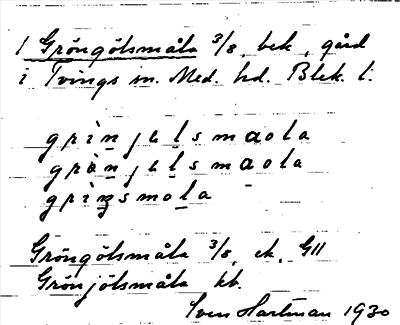 1 Gröngölsmåla 3/8, bek, gård
i Tvings sn. Med. hd. Blek. l.
grìnjelsmaola
grànjelsmaola
grìŋsmola
Gröngölsmåla 3/8, ek, G11
Grönjölsmåla kb.
Sven Hartman 1930